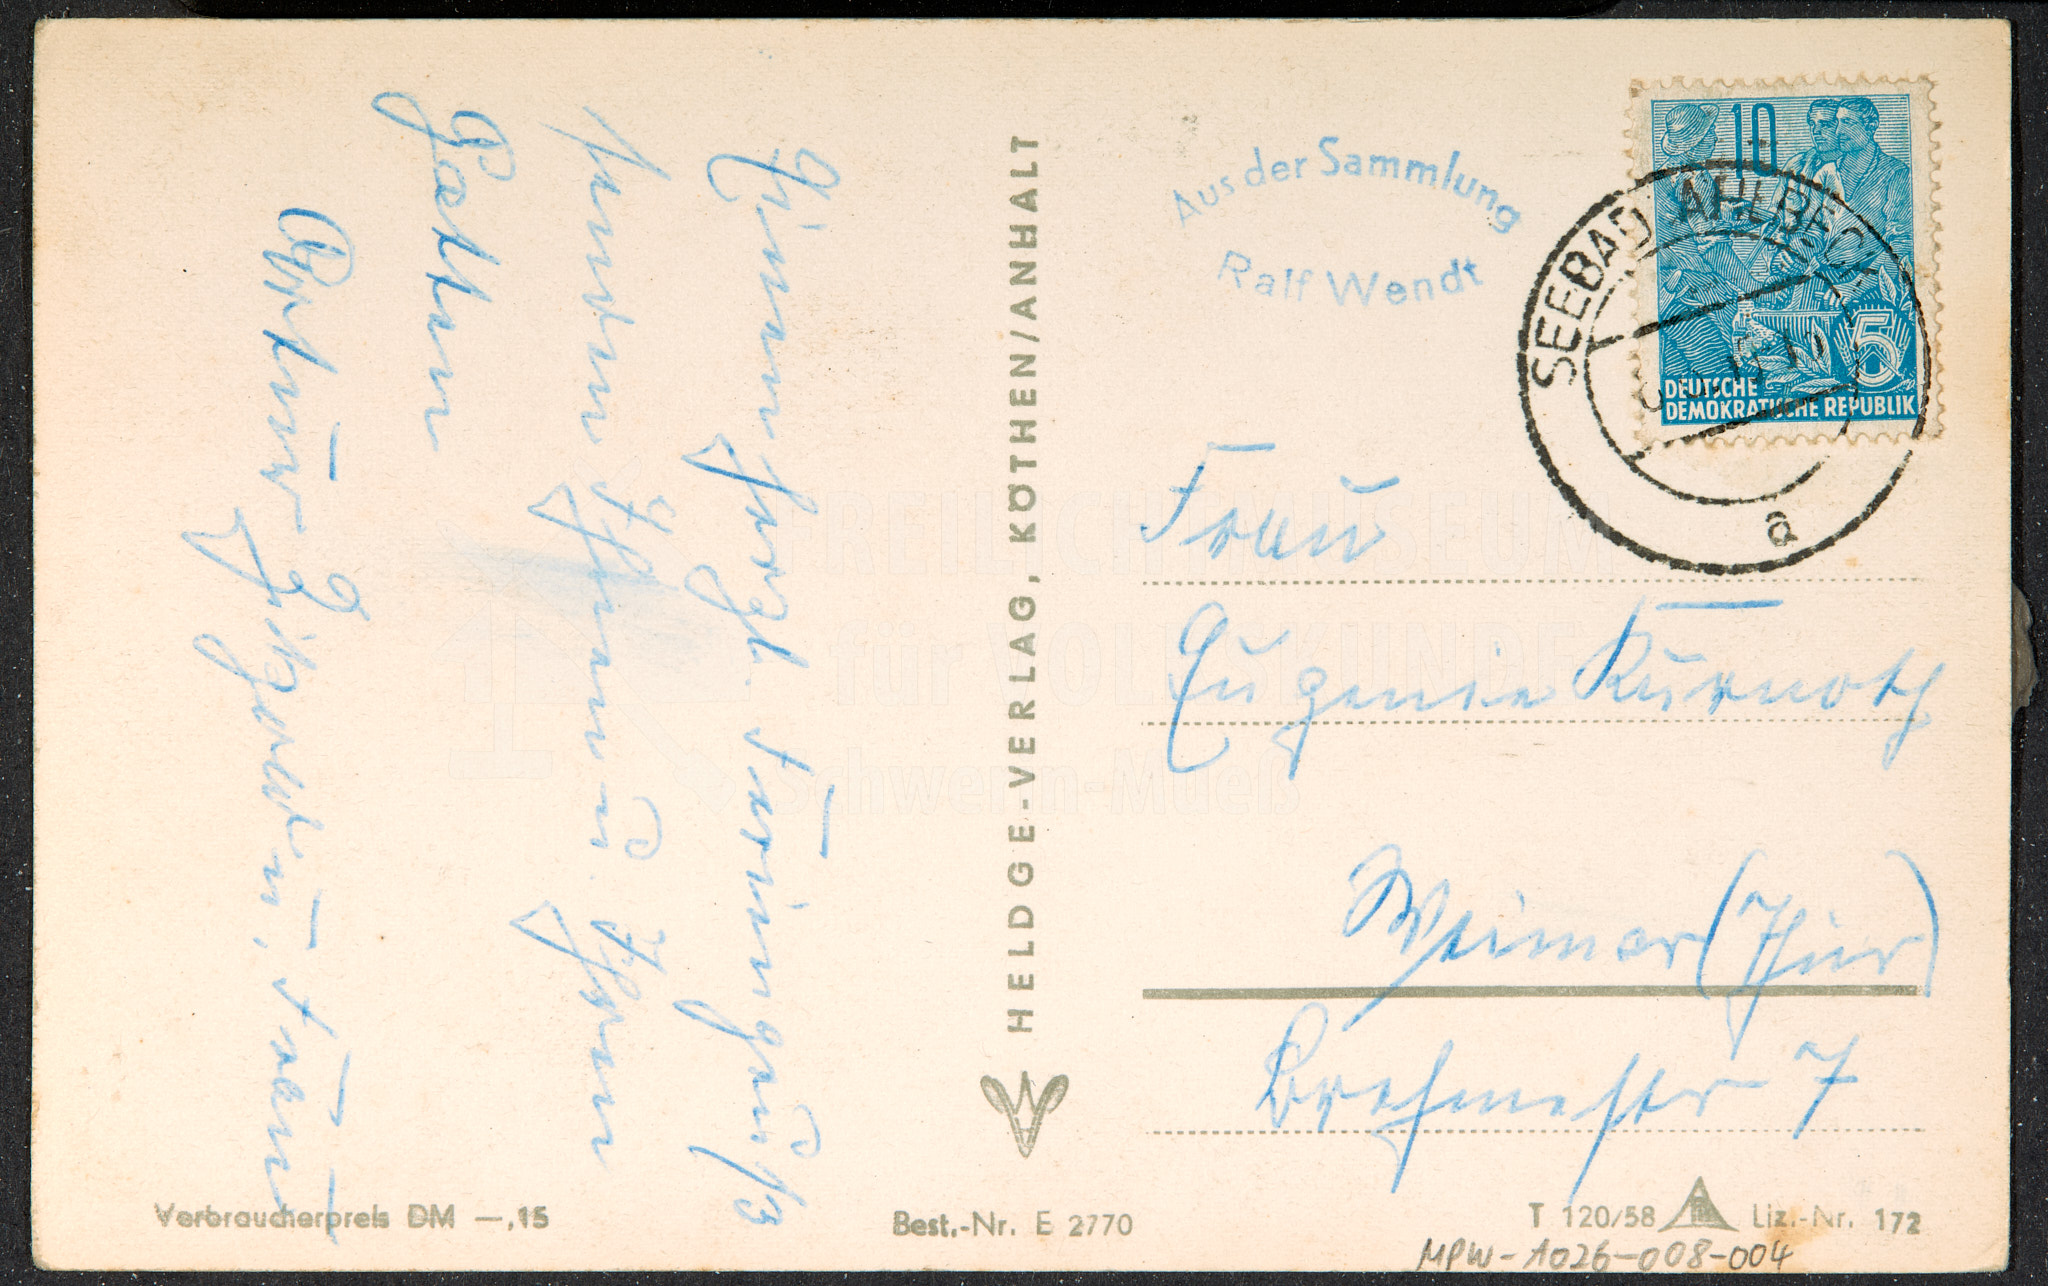 Einen herzl. Feriengruß
senden Ihnen u. Ihrem
Gatten
Arthur Zigorlin, Frau
HELDGE-VERLAG, KÖTHEN/ANHALT
Aus der Sammlung
Ralf Wendt
10
5
DEUTSCHE
DEMOKRATISCHE REPUBLIK
SEEBAD AHLBECK
a
Frau
Eugenie Kurnoth
Weimar (Thür)
Brehmestr 7
FREILICHTMUSEUM
für VOLKSKUNDE
Schwerin-Mueß
Verbraucherpreis DM —,15
Best.-Nr. E 2770
T 120/58
Liz.-Nr. 172
MPW-1026-008-004